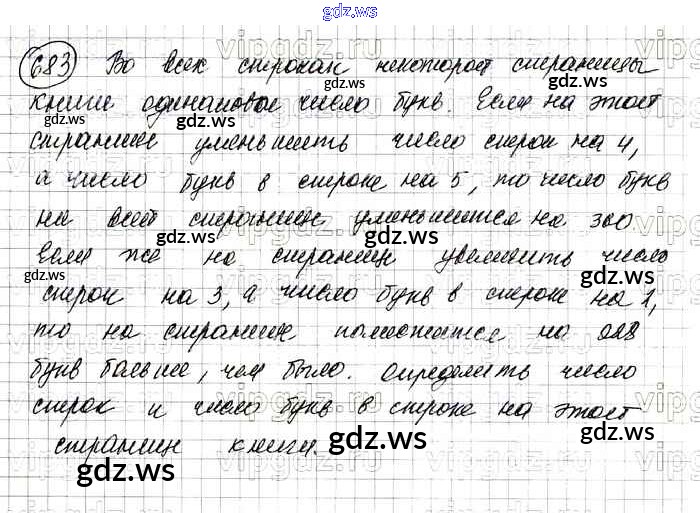 gdz.ws
683 Во всех строках некоторой страницы
книги одинаковое число букв. Если на этой
странице уменьшить число строк на 4,
а число букв в строке на 5, то число букв
на всей странице уменьшится на 360
Если же на странице увеличить число
строк на 3, а число букв в строке на 2,
то на странице поместится на 228
букв больше, чем было. Определить число
строк и число букв в строке на этой
странице книги.